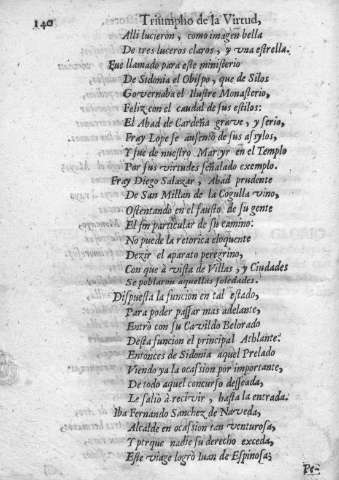 140 Triumpho de la Virtud,
Alli lucieron, como imagen bella
De tres luceros claros, y vna estrella.
Fue llamado para este ministerio
De Sidonia el Obispo, que de Silos
Governaba el Ilustre Monasterio,
Feliz con el caudal de sus estilos:
El Abad de Cardeña grave, y serio,
Fray Lope se ausentò de sus asylos,
Y fue de nuestro Martyr en el Templo
Por sus virtudes señalado exemplo.
Fray Diego Salazar, Abad prudente
De San Millan de la Cogulla vino,
Ostentando en el fausto de su gente
El fin particular de su camino:
No puede la retorica eloquente
Dezir el aparato peregrino,
Con que à vista de Villas, y Ciudades
Se poblaron aquellas soledades.
Dispuesta la funcion en tal estado,
Para poder passar mas adelante,
Entrò con su Cavildo Belorado
Desta funcion el principal Athlante:
Entonces de Sidonia aquel Prelado
Viendo ya la ocassion por importante,
De todo aquel concurso desseada,
Le saliò à recivir, hasta la entrada.
Iba Fernando Sanchez de Narveda,
Alcalde en ocasion tan venturosa,
Y porque nadie su derecho exceda,
Este viage logrò Iuan de Espinosa;
Pe-